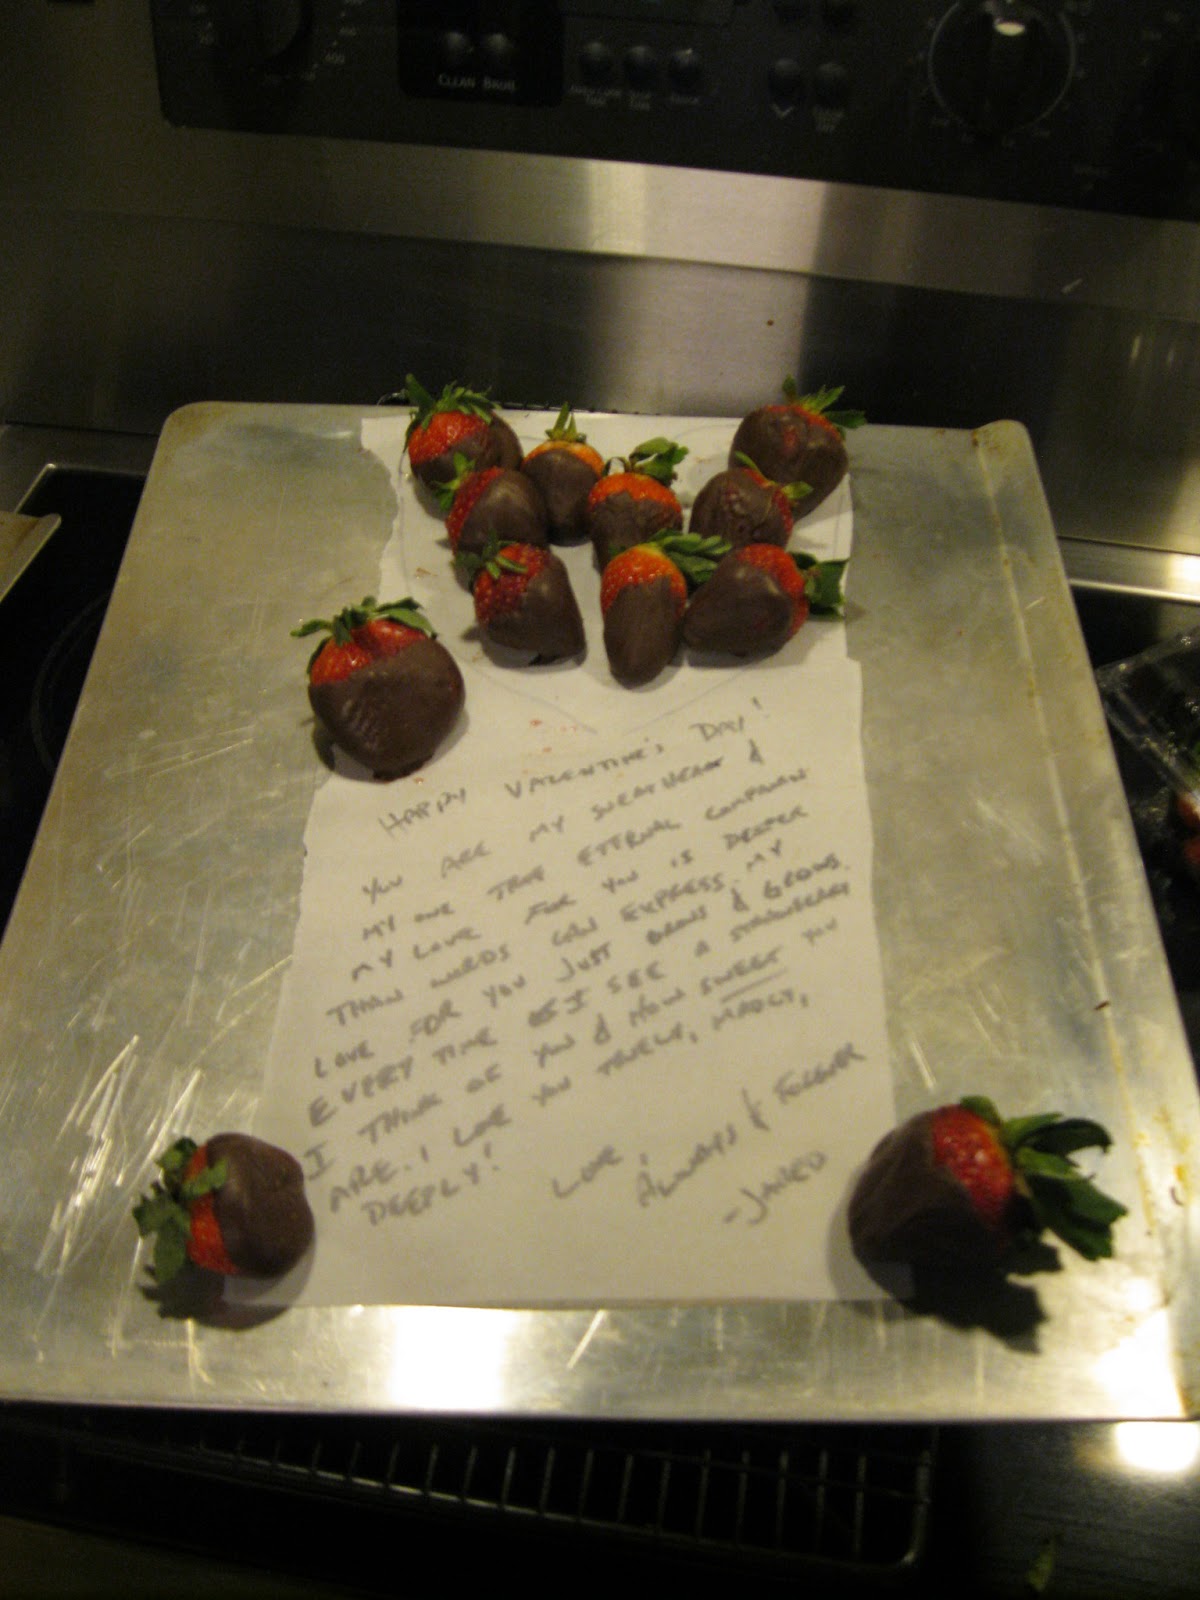 CLEAN BROIL
HAPPY VALENTINE'S DAY!
YOU ARE MY SWEATHEART &
MY ONE TRUE ETERNAL COMPANION
MY LOVE FOR YOU IS DEEPER
THAN WORDS CAN EXPRESS. MY
LOVE FOR YOU JUST GROWS & GROWS.
EVERY TIME I SEE A STRAWBERRY
I THINK OF YOU & HOW SWEET YOU
ARE. I LOVE YOU TRUELY, MADLY,
DEEPLY!
LOVE,
ALWAYS & FOREVER
-JARED